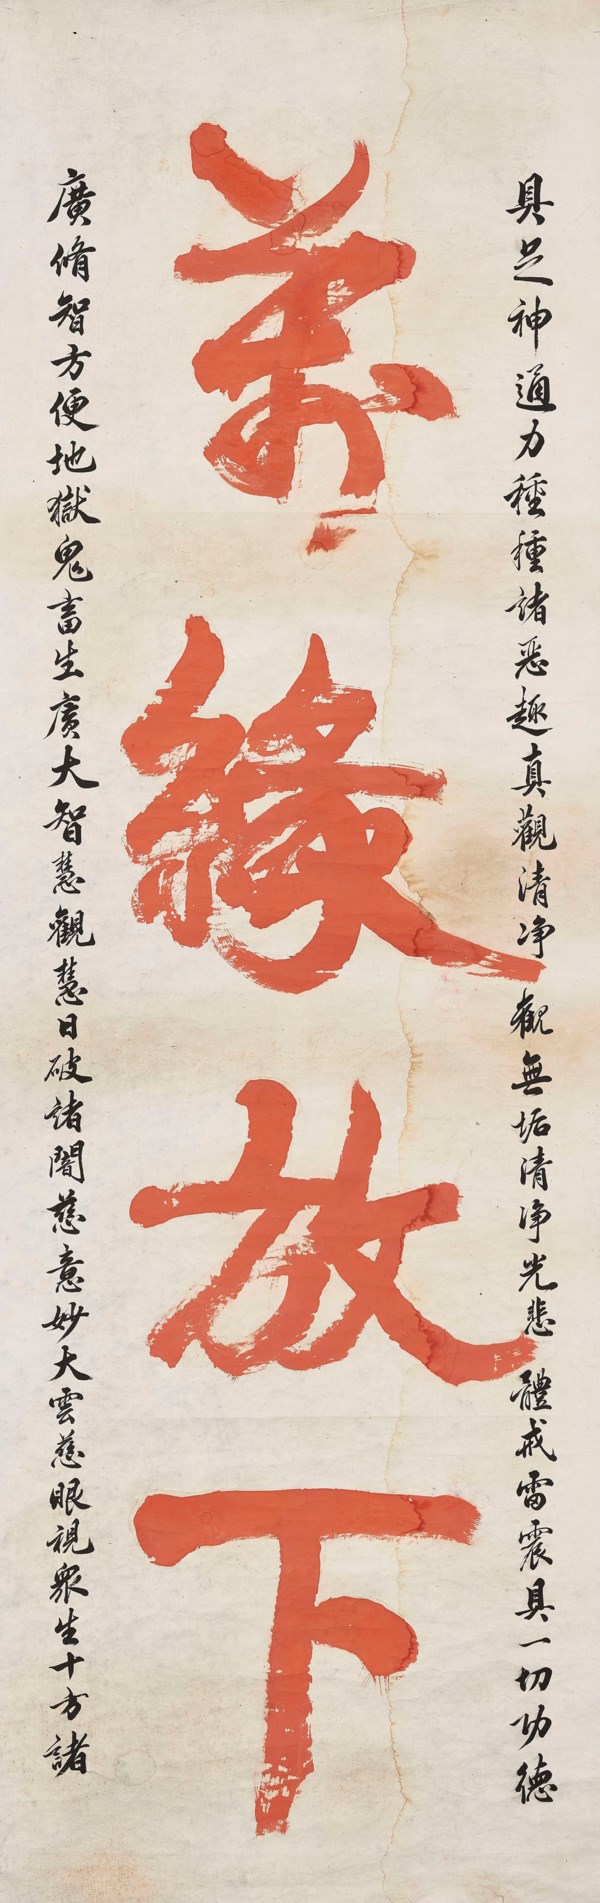 具足神通力種種諸惡趣真觀清净觀無垢清净光悲體戒雷震具一切功德
萬緣放下
廣脩智方便地獄鬼畜生廣大智慧觀慧日破諸闇慈意妙大雲慈眼視眾生十方諸